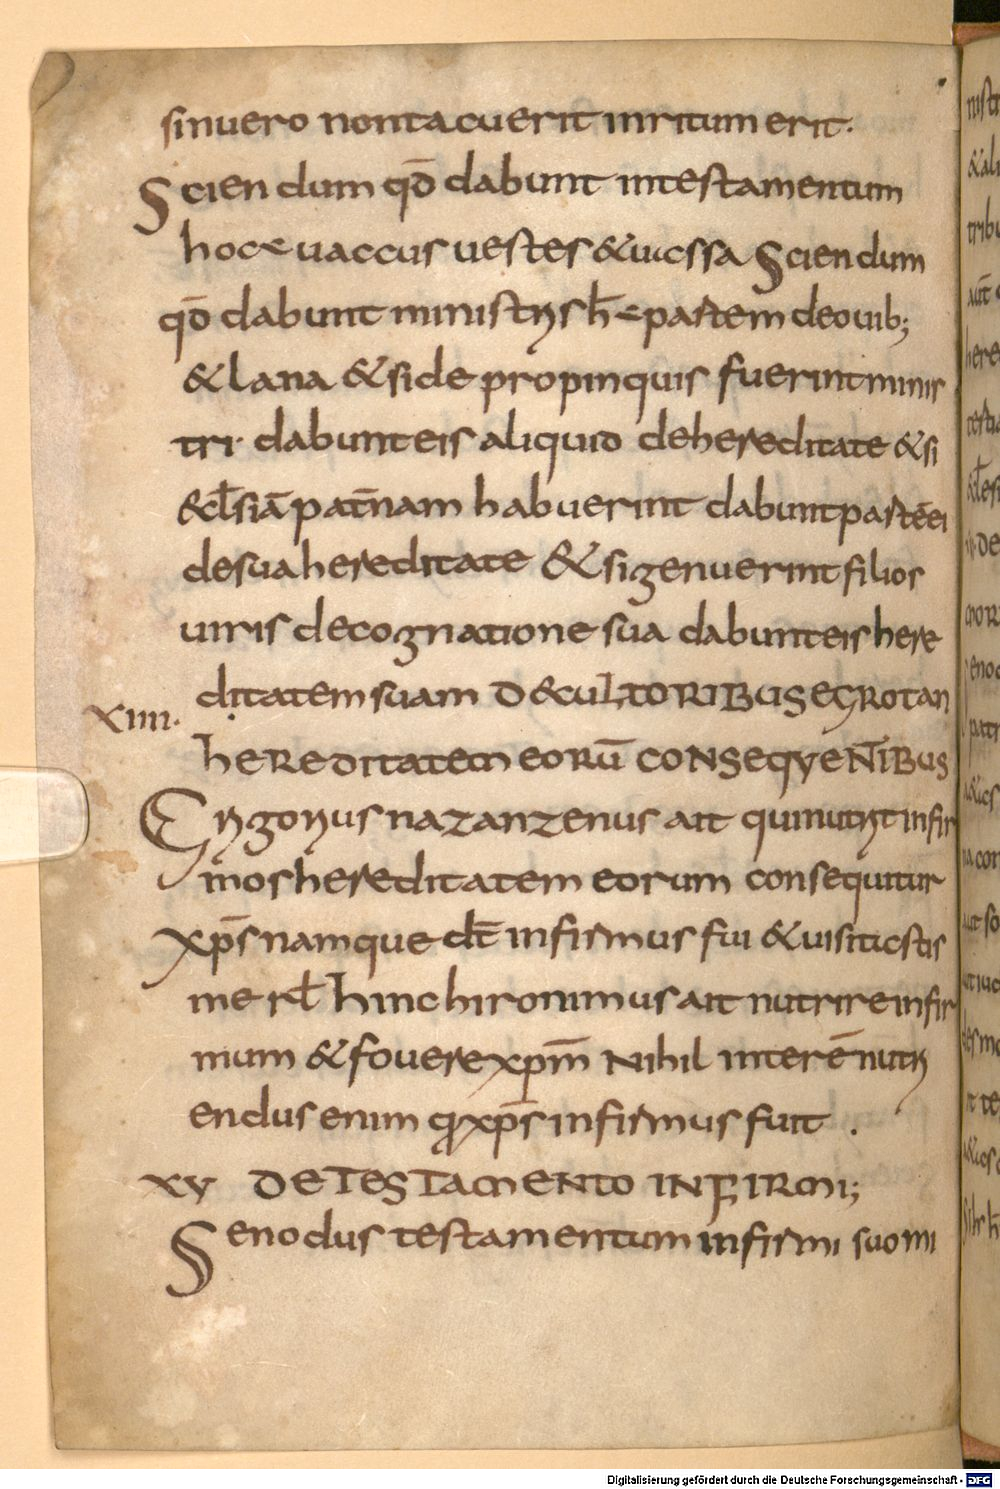 sinuero non tacuerit inritum erit.
Sciendum qđ dabunt intestamentum
hoc e uaccus uestes & uassa Sciendum
qđ dabunt ministris hēpartem deouib;
& lana & si de propinquis fuerint minis
tri. dabunt eis aliquid de hereditate & si
&clsiā patnam habuerint dabunt partē ei
de sua hereditate & si genuerint filios
uiris de cognatione sua dabunt eis here
ditatem suam D&CULTORIBUS EGROTAN
XIIII.
hereditatem eorū CONSEQUENTIBUS
Grigorius nazanzenus ait qui nutrit infir
mos hereditatem eorum consequitur
xp̄s namque dt̄ infirmus fui & uisitastis
me rl hinc hironimus ait nutrire infir
mum & fouere xpm̄ Nihil interē nutri
endus enim q xp̄s infirmus fuit .
XV DE TESTAMENTO INFIRMI;
Senodus testamentum infirmi suo mi
Digitalisierung gefördert durch die Deutsche Forschungsgemeinschaft - DFG